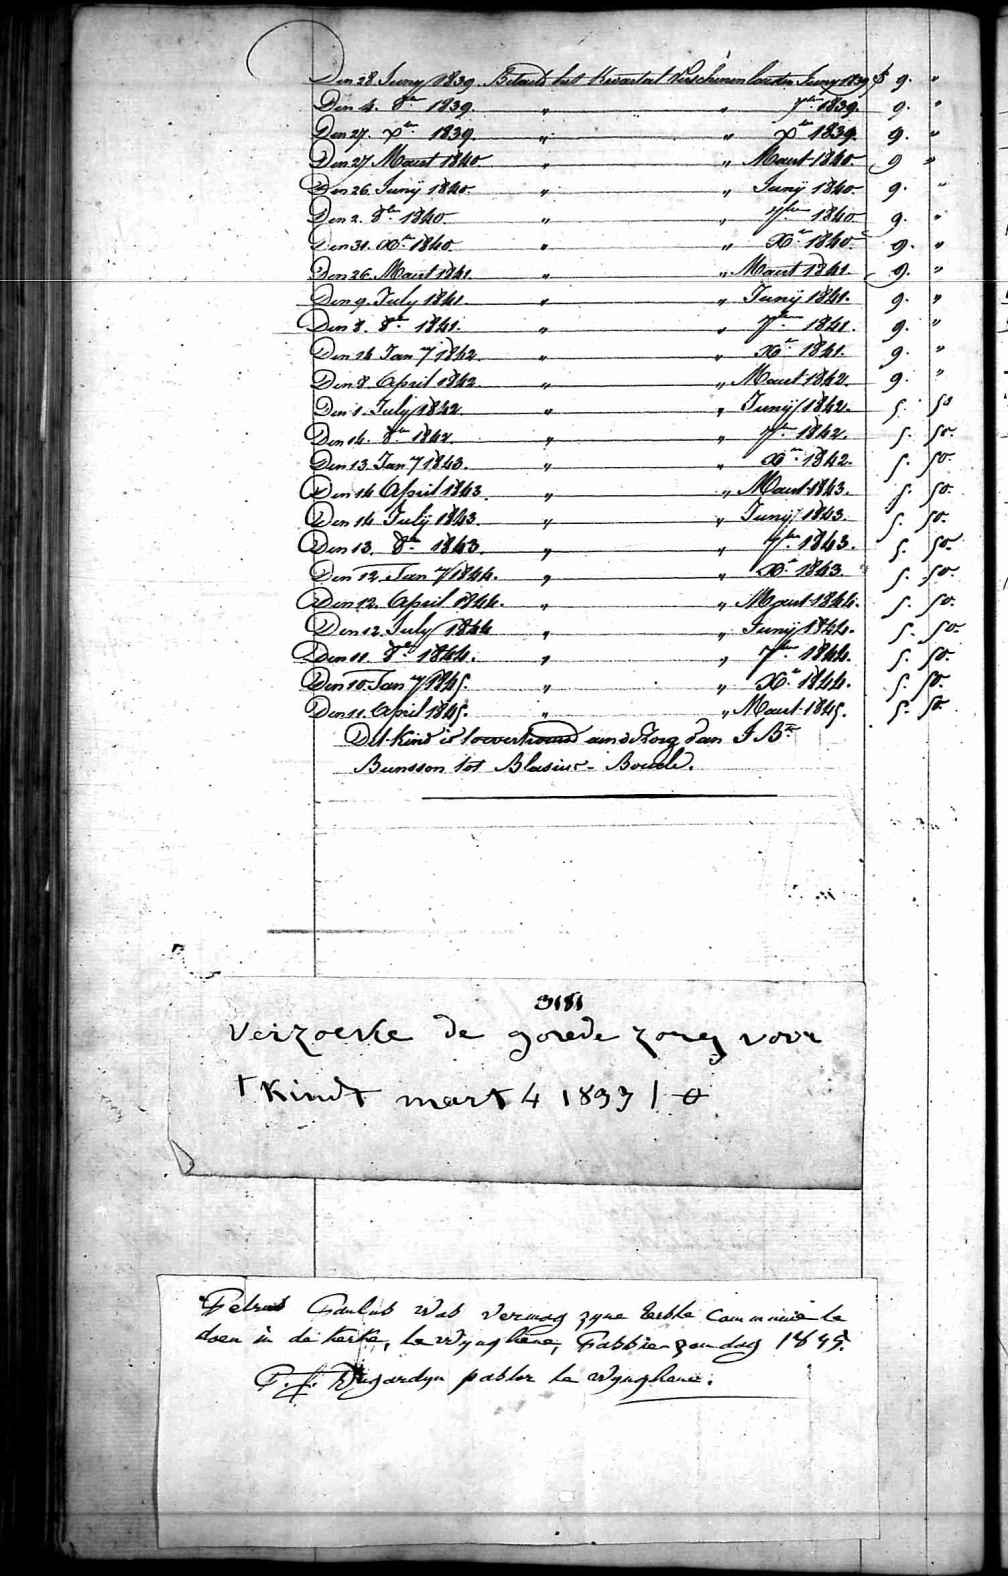 Den 28. Juny 1839. Betaald het Kwartaal Verschenen laesten Juny 1839 $ 9. "
Den 4. 8bre 1839. " " 7bre 1839. 9. "
Den 27. Xbre 1839. " " Xbre 1839. 9. "
Den 27. Maart 1840 " " Maart 1840 9 "
Den 26. Junij 1840. " " Junij 1840 9. "
Den 2. 8bre 1840 " " 7bre 1840 9. "
Den 31. Xbre 1840. " " Xbre 1840. 9. "
Den 26. Maart 1841. " " Maart 1841. 9. "
Den 9. July 1841 " " Junij 1841. 9. "
Den 8. 8bre 1841. " " 7bre 1841. 9. "
Den 14 Jan 7 1842. " " Xbre 1841. 9. "
Den 8. April 1842. " " Maart 1842. 9. "
Den 1. July 1842. " " Junij 1842. 5. 50
Den 14. 8bre 1842. " " 7bre 1842. 5. 50.
Den 13. Jan 7 1843. " " Xbre 1842. 5. 50.
Den 14 April 1843 " " Maart 1843. 5. 50.
Den 14. July 1843. " " Junij 1843. 5. 50.
Den 13. 8bre 1843. " " 7bre 1843. 5. 50.
Den 12. Jan 7 1844. " " Xbre 1843. 5. 50.
Den 12. April 1844. " " Maart 1844. 5. 50.
Den 12. July 1844 " " Junij 1844. 5. 50.
Den 11. 8bre 1844. " " 7bre 1844. 5. 50.
Den 10. Jan 7 1845. " " Xbre 1844. 5. 50.
Den 11. April 1845. " " Maart 1845. 5. 50
Dit Kind is toevertrouwd aan de Zorg van J. Bte
Bunsson tot Blasius-Boucle.
3181
Verzoeke de goede zorg voor
t Kindt mart 4 1833
Petrus Paulus Wab vermag zyne eerste communie te
doen in de kerke, te Wynghene, Passie zondag 1845.
pastor te Wynghene.